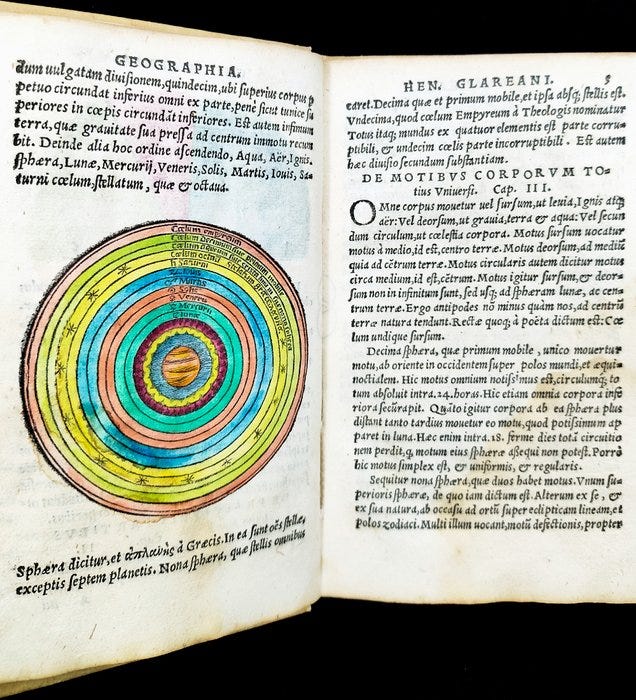 GEOGRAPHIA.
dum uulgatam diuiſionem, quindecim, ubi ſuperius corpus p
petuo circundat inferius omni ex parte, penè ſicut tunicæ ſu
periores in cœpis circundāt inferiores. Eſt autem infimum
terra, quæ grauitate ſua preſſa ad centrum immotu recum
bit. Deinde alia hoc ordine aſcendendo, Aqua, Aër, Ignis.
ſphæra, Lunæ, Mercurij, Veneris, Solis, Martis, Iouis, Sa-
turni cœlum, ſtellatum, quæ & octaua.
Cœlum empyreum
Cœlum decimum
Cœlum nonum
Cœlum octauū
♄ Saturni
♃ Iouis
♂ Martis
☉ Solis
♀ Veneris
☿ Mercurij
☾ Lunæ
Sphæra dicitur, et ἀπλανὴς à Græcis. In ea ſunt oēs ſtellæ,
exceptis ſeptem planetis. Nona ſphæra, quæ ſtellis omnibus
HEN. GLAREANI. 5
caret. Decima quæ et primum mobile, et ipſa abſq; ſtellis eſt.
Vndecima, quod cœlum Empyreum à Theologis nominatur
Totus itaq; mundus ex quatuor elementis eſt parte corru-
ptibili, & undecim cœlis parte incorruptibili. Eſt autem
hæc diuiſio ſecundum ſubſtantiam.
DE MOTIBVS CORPORVM TO-
tius Vniuerſi. Cap. III.
OMne corpus mouetur uel ſurſum, ut leuia, Ignis atq;
aër: Vel deorſum, ut grauia, terra & aqua: Vel ſecun
dum circulum, ut cæleſtia corpora. Motus ſurſum uocatur
motus à medio, id eſt, centro terræ. Motus deorſum, ad mediū
quia ad cētrum terræ. Motus circularis autem dicitur motus
circa medium, id eſt, cētrum. Motus igitur ſurſum, & deor-
ſum non in infinitum ſunt, ſed uſq; ad ſphæram lunæ, ac cen-
trum terræ. Ergo antipodes nō minus quàm nos, ad centrū
terræ natura tendunt. Rectæ quoq; à poëta dictum eſt: Cœ
lum undique ſurſum.
Decima ſphæra, quæ primum mobile, unico mouetur
motu, ab oriente in occidentem ſuper polos mundi, et æqui-
noctialem. Hic motus omnium notiſsimus eſt, circulumq; to
tum abſoluit intra .24. horas. Hic etiam omnia corpora infe
riora ſecū rapit. Quāto igitur corpora ab ea ſphæra plus
diſtant tanto tardius mouetur eo motu, quod potiſsimum ap
paret in luna. Hæc enim intra .28. ferme dies totā circuitio
nem perdit, q, motum eius ſphæræ aſſequi non poteſt. Porrò
hic motus ſimplex eſt, & uniformis, & regularis.
Sequitur nona ſphæra, quæ duos habet motus. Vnum ſu-
perioris ſphæræ, de quo iam dictum eſt. Alterum ex ſe, &
ex ſua natura, ab occaſu ad ortū ſuper eclipticam lineam, et
polos zodiaci. Multi illum uocant, motū defectionis, propter